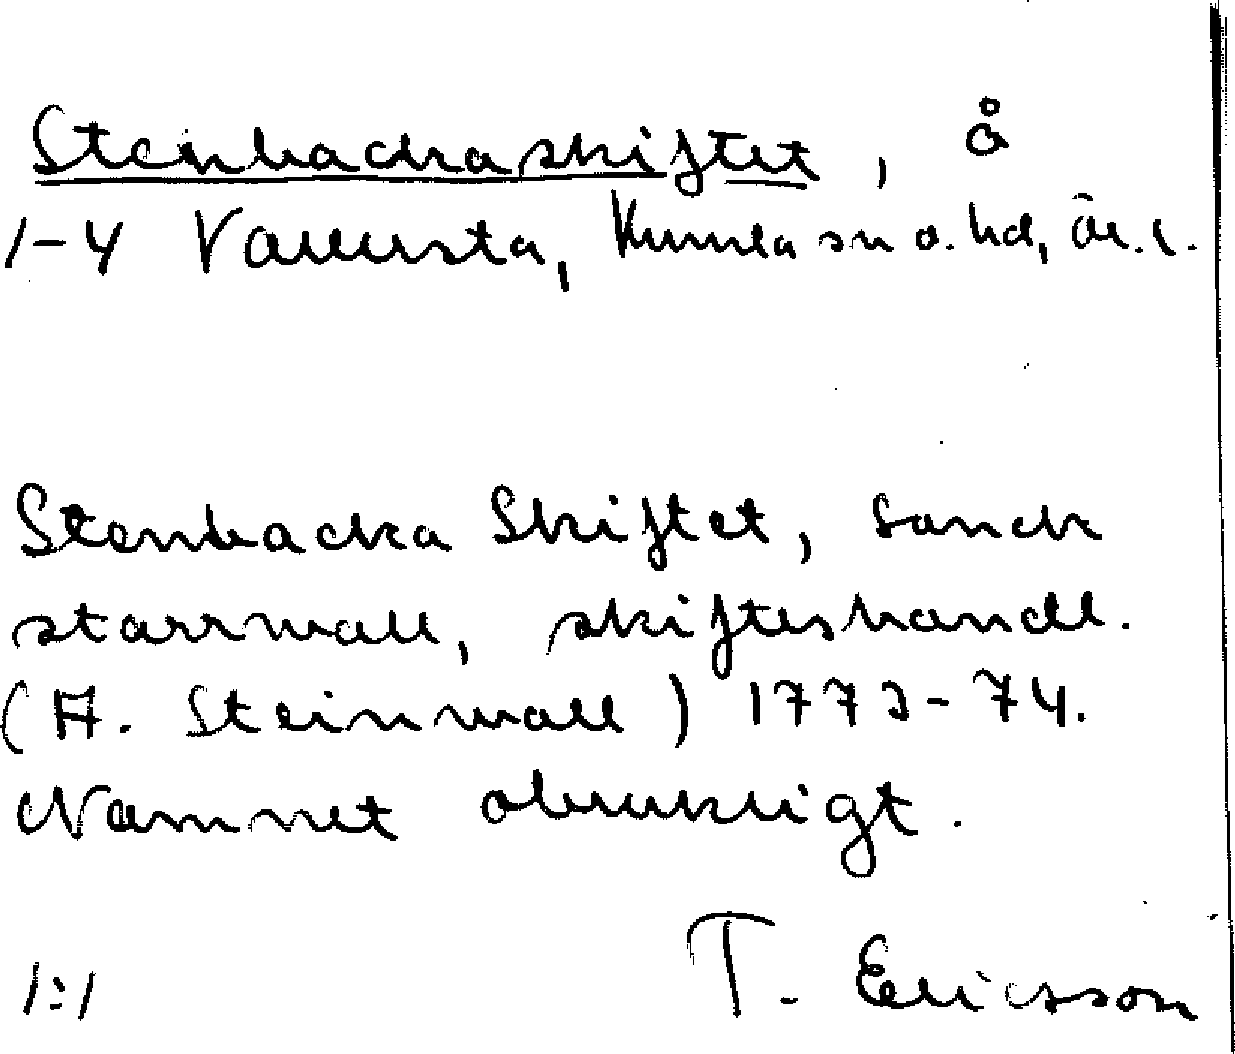 Stenbackaskiftet, å
1-4 Vallersta, Kumla sn o. hd, Ör. l.
Stenbacka Skiftet, sanck
starrwall, skifteshandl.
(A. Steinwall) 1773-74.
Namnet obrukligt.
1:1 T. Ericsson